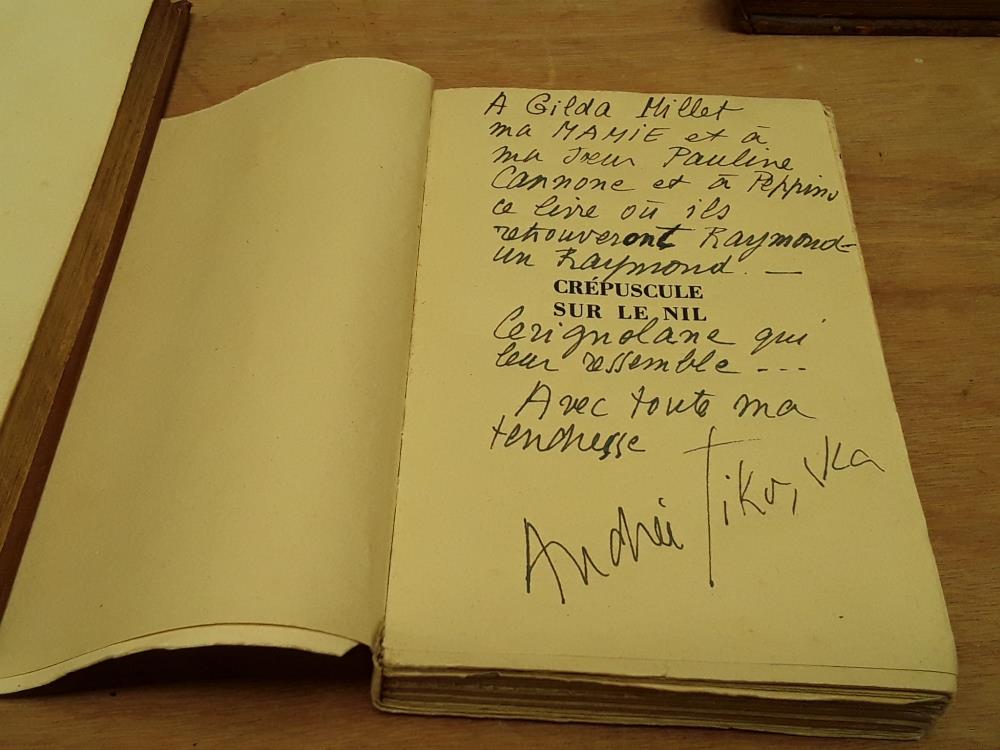 A Gilda Millet
ma MAMIE et à
ma sœur Pauline
Cannone et à Peppino
ce livre où ils
retrouveront Raymond-
un Raymond. —
CRÉPUSCULE
SUR LE NIL
Cerignolane qui
leur ressemble ---
Avec toute ma
tendresse